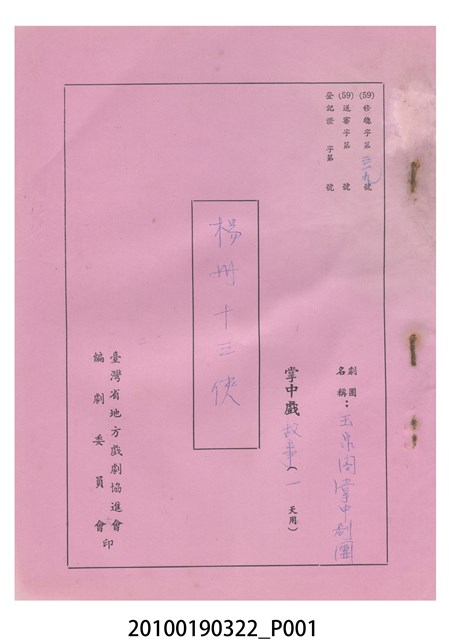 (59)修題字第三一九號
(59)送審字第　　號
登記證　字第　　號
劇團名稱：玉泉閣掌中劇團
掌中戲故事(一天用)
楊州十三俠
臺灣省地方戲劇協進會
編劇委員會印
20100190322_P001